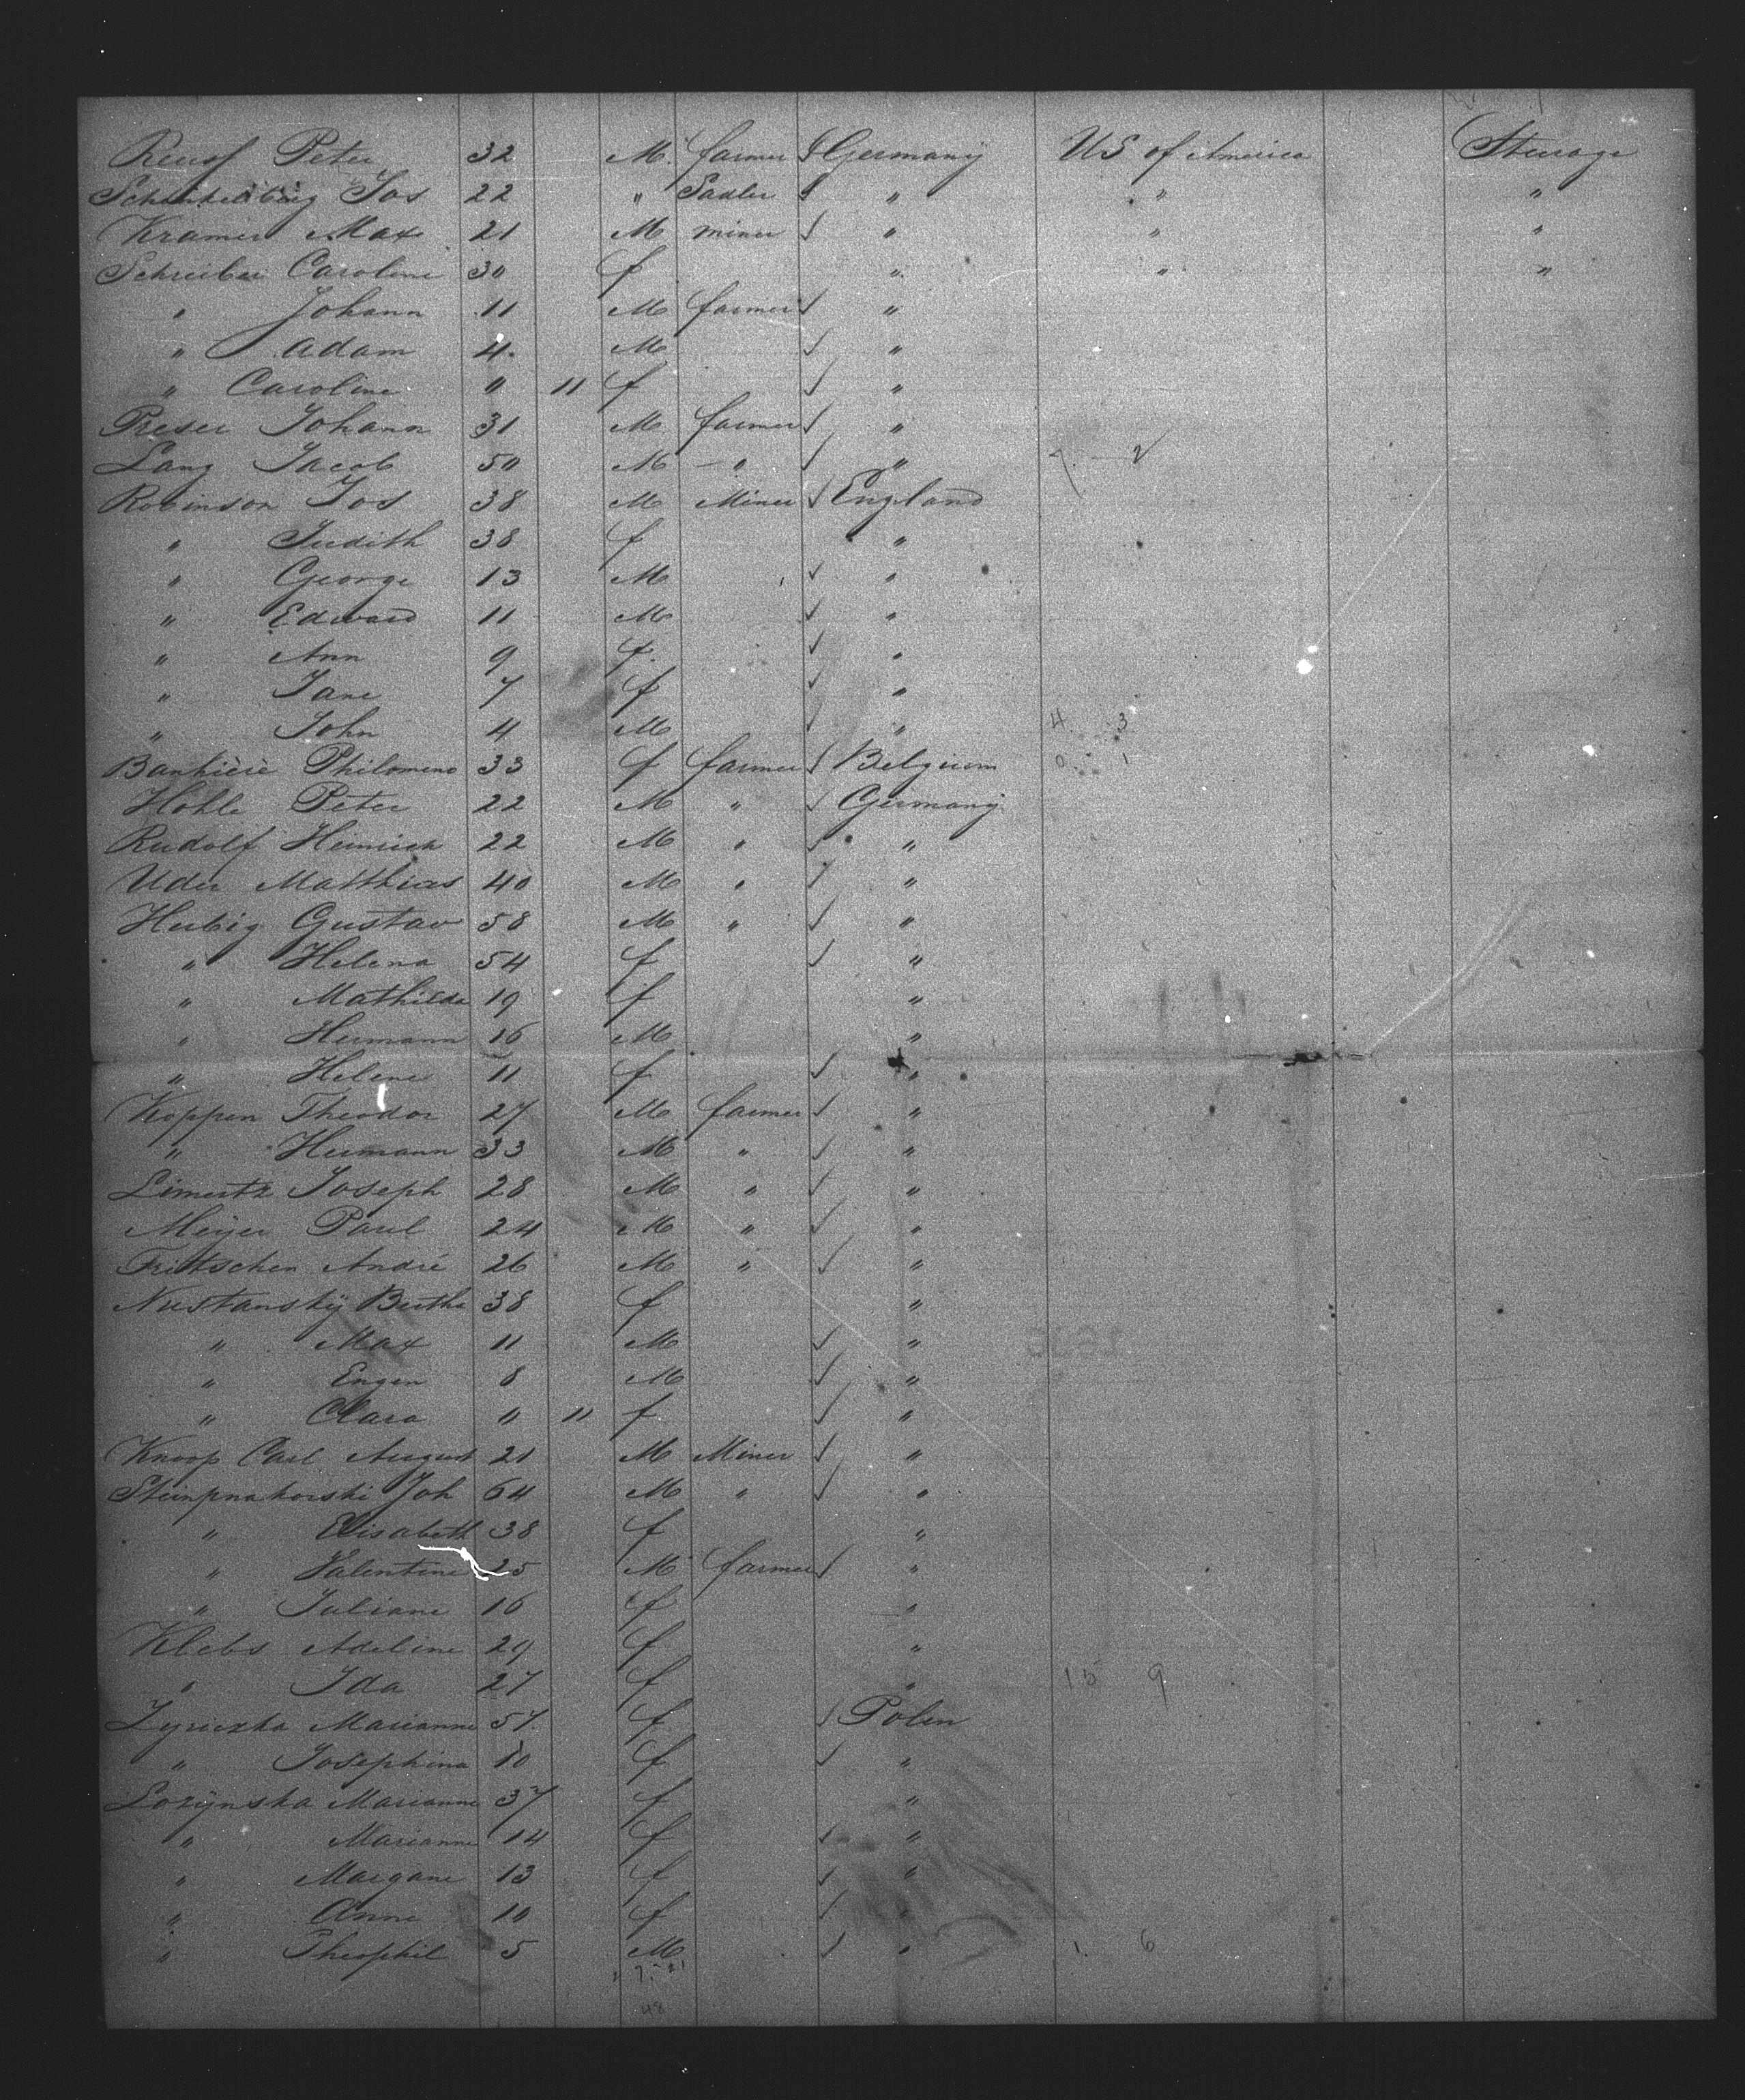 Reuss Peter 32 M. farmer Germany US of America Steerage
Jos 22 " Sadler " " "
Kramer Max 21 M miner " " "
Schreiber Caroline 30 f " " "
" Johann 11 M farmer "
" Adam 4. M "
" Caroline " 11 f "
Preser Johann 31 M farmer "
Lang Jacob 50 M — " " 7. 2
Robinson Jos 38 M Miner England
" Judith 38 f "
" George 13 M "
" Edward 11 M "
" Ann 9 f. "
" Jane 7 f "
" John 4 M " 4. 3
Philomene 33 f farmer Belgium 0. 1
Hohle Peter 22 M " Germany
Rudolf Heinrich 22 M " "
Uder Matthias 40 M " "
Hubig Gustav 58 M " "
" Helena 54 f "
" Mathilda 19 f "
" Hermann 16 M "
" Helene 11 f "
Koppen Theodor 27 M farmer "
" Hermann 33 M " "
Limertz Joseph 28 M " "
Meyer Paul 24 M " "
Fritschen André 26 M " "
Nustansky Bertha 38 f "
" Max 11 M "
" Eugen 8 M "
" Clara " 11 f "
Knoop Carl August 21 M Miner "
Joh 64 M " "
" Elisabeth 38 f "
" Valentine 25 M farmer "
" Juliane 16 f "
Klebs Adeline 29 f "
" Ida 27 f " 15 9
Marianne 57. f Polen
" Josephina 10 f "
Lozynska Marianne 37 f "
" Marianne 14 f "
" Margane 13 f "
" Anne 10 f "
" Theophil 5 M " 1. 6
48